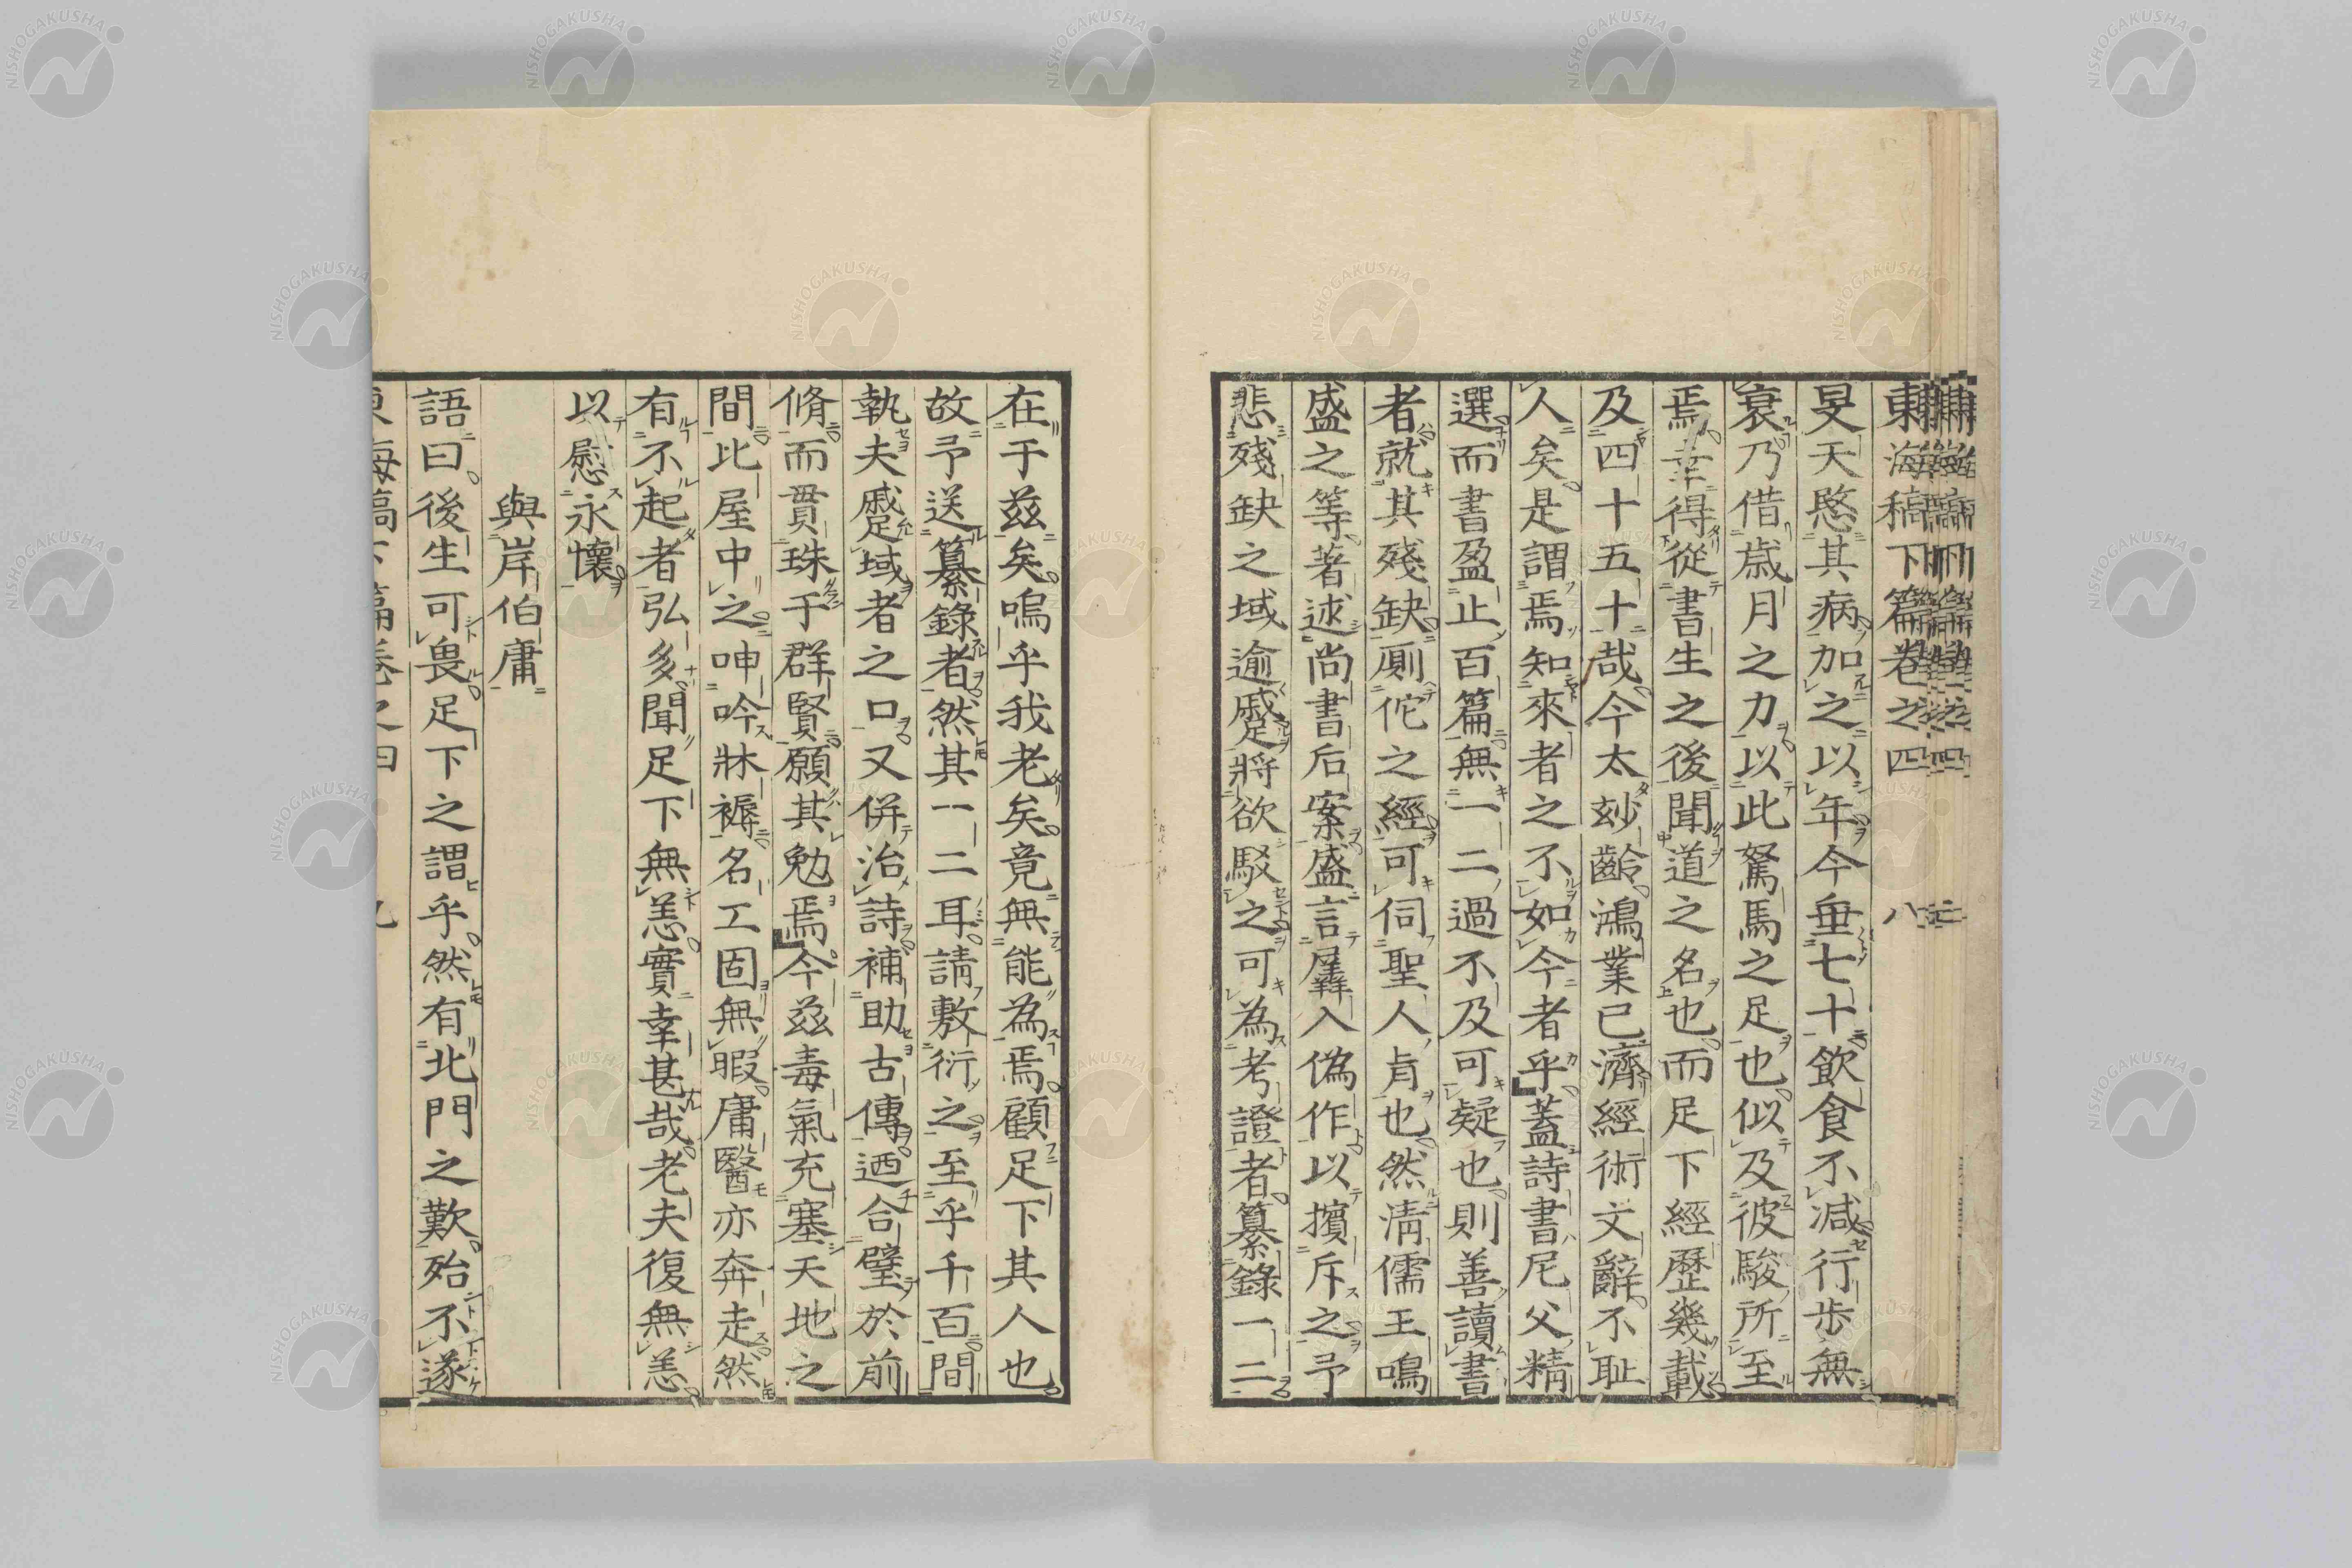 東海稿下篇卷之四 八
旻天愍其病加之以年今垂七十飮食不減行歩無
衰乃借歳月之力以此駑馬之足也似及彼駿所至
焉幸得從書生之後聞道之名也而足下經歷幾載
及四十五十哉今太玅齡鴻業已濟經術文辭不耻
人矣是謂焉知來者之不如今者乎蓋詩書尼父精
選而書盈止百篇無一二過不及可疑也則善讀書
者就其殘缺厠佗之經可伺聖人肯也然淸儒王鳴
盛之等著述尚書后案盛言羼入偽作以擯斥之予
悲殘缺之域逾蹙將欲駁之可為考證者纂錄一二
在于兹矣嗚乎我老矣竟無能為焉顧足下其人也
故予送纂錄者然其一二耳請敷衍之至乎千百間
執夫蹙域者之口又併治詩補助古傳迺合璧於前
脩而貫珠于群賢願其勉焉今兹毒氣充塞天地之
間比屋中之呻吟牀褥名工固無暇庸醫亦奔走然
有不起者弘多聞足下無恙實幸甚哉老夫復無恙
以慰永懷
與岸伯庸
語曰後生可畏足下之謂乎然有北門之歎殆不遂
東海稿下篇卷之四 九
NISHOGAKUSHA